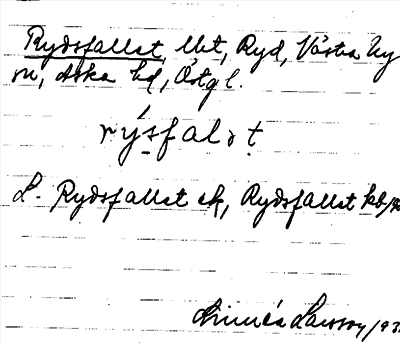 Rydsfallet, lht, Ryd, Västra Ny
sn, Aska hd, Östgl.
rýsfalət
L. Rydsfallet ek, Rydsfallet kb/
Linnéa Larsson/93